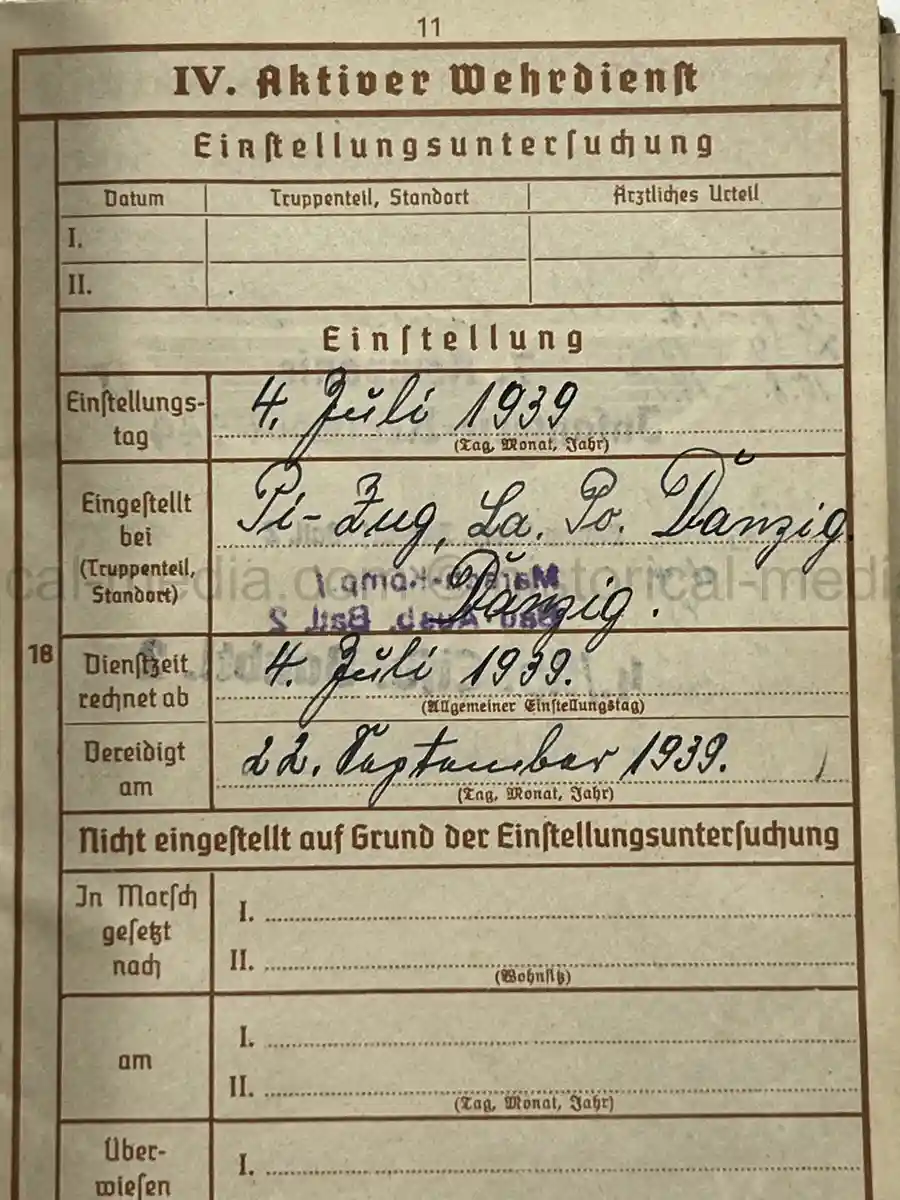 11
IV. Aktiver Wehrdienst
Einstellungsuntersuchung
Datum Truppenteil, Standort Ärztliches Urteil
I.
II.
Einstellung
Einstellungs-
tag
4. Juli 1939
(Tag, Monat, Jahr)
Eingestellt
bei
(Truppenteil,
Standort)
Pi-Zug, La. Po. Danzig.
Danzig.
18
Dienstzeit
rechnet ab
4. Juli 1939.
(Allgemeiner Einstellungstag)
Vereidigt
am
22. September 1939.
(Tag, Monat, Jahr)
Nicht eingestellt auf Grund der Einstellungsuntersuchung
In Marsch
gesetzt
nach
I.
II.
(Wohnsitz)
am
I.
II.
(Tag, Monat, Jahr)
Über-
wiesen
I.